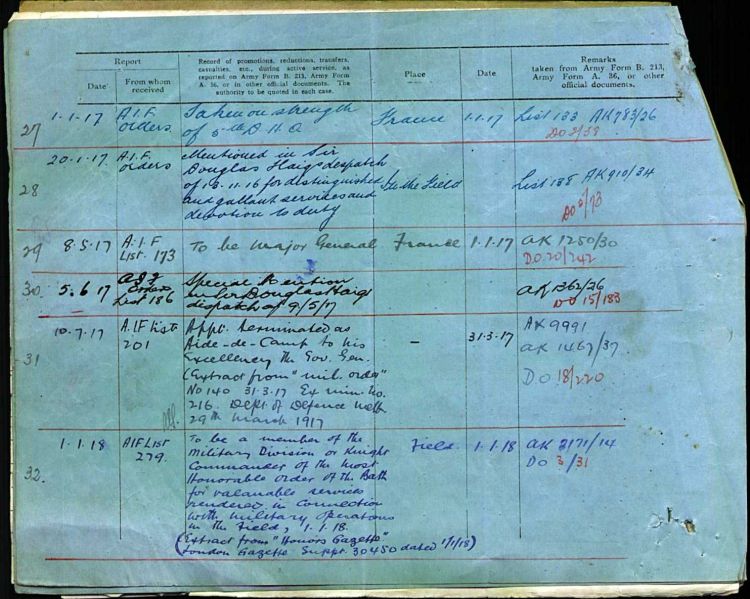 Report
Date
From whom received
Record of promotions, reductions, transfers, casualties, etc., during active service, as reported on Army Form B. 213, Army Form A. 36, or in other official documents. The authority to be quoted in each case.
Place
Date
Remarks
taken from Army Form B. 213, Army Form A. 36, or other official documents.
27
1.1.17
A.I.F. orders.
Taken on strength
of 5th D.H.Q
France
1.1.17
List 133 AK 783/26
28
20.1.17
A.I.F. orders
Mentioned in Sir
Douglas Haig's despatch
of 13.11.16 for distinguished
and gallant services and
devotion to duty
In the Field
List 138 AK 910/34
DO 2/73
29
8.5.17
A.I.F
List. 173
To be Major General
France
1.1.17
AK 1250/30
D.O. 20/242
30.
5.6.17
List 186
Special Mention
in Sir Douglas Haig's
dispatch of 9/5/17
AK 1362/26
DO 15/183
31
10.7.17
A.IF List
201
Appt. terminated as
Aide-de-Camp to his
Excellency the Gov. Gen.
(Extract from "mil. order"
No 140 31.3.17 Ex min. No.
216. Dept of Defence Melb
29th March 1917
-
31.3.17
AK 9991
AK 1467/37
D.O 18/220
32.
1.1.18
AIF List
279.
To be a member of the
Military Division or Knight
Commander of the most
Honorable Order of the Bath
for valuanable services
rendered in Connection
with military Operations
in the Field, 1.1.18.
(Extract from "Honors Gazette"
London Gazette Suppt. 30450 dated 1/1/18)
Field.
1.1.18
AK 2171/14
DO 3/31